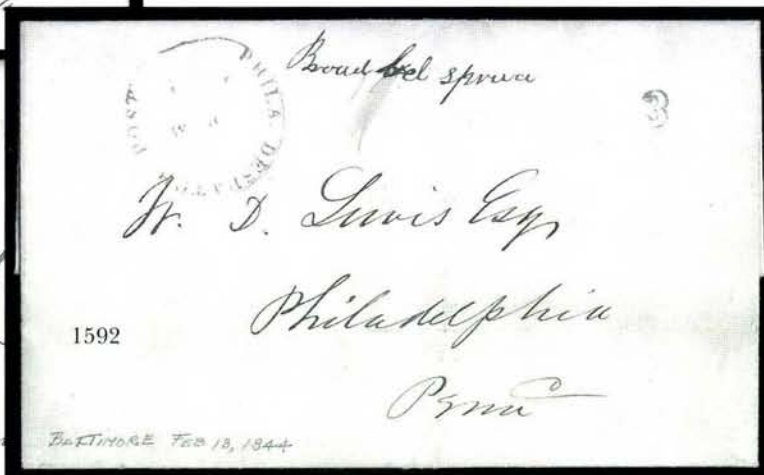 PHILA DESPATCH POST
3
W. D. Lewis Esq
Philadelphia
Penna
1592
BALTIMORE FEB 13, 1844